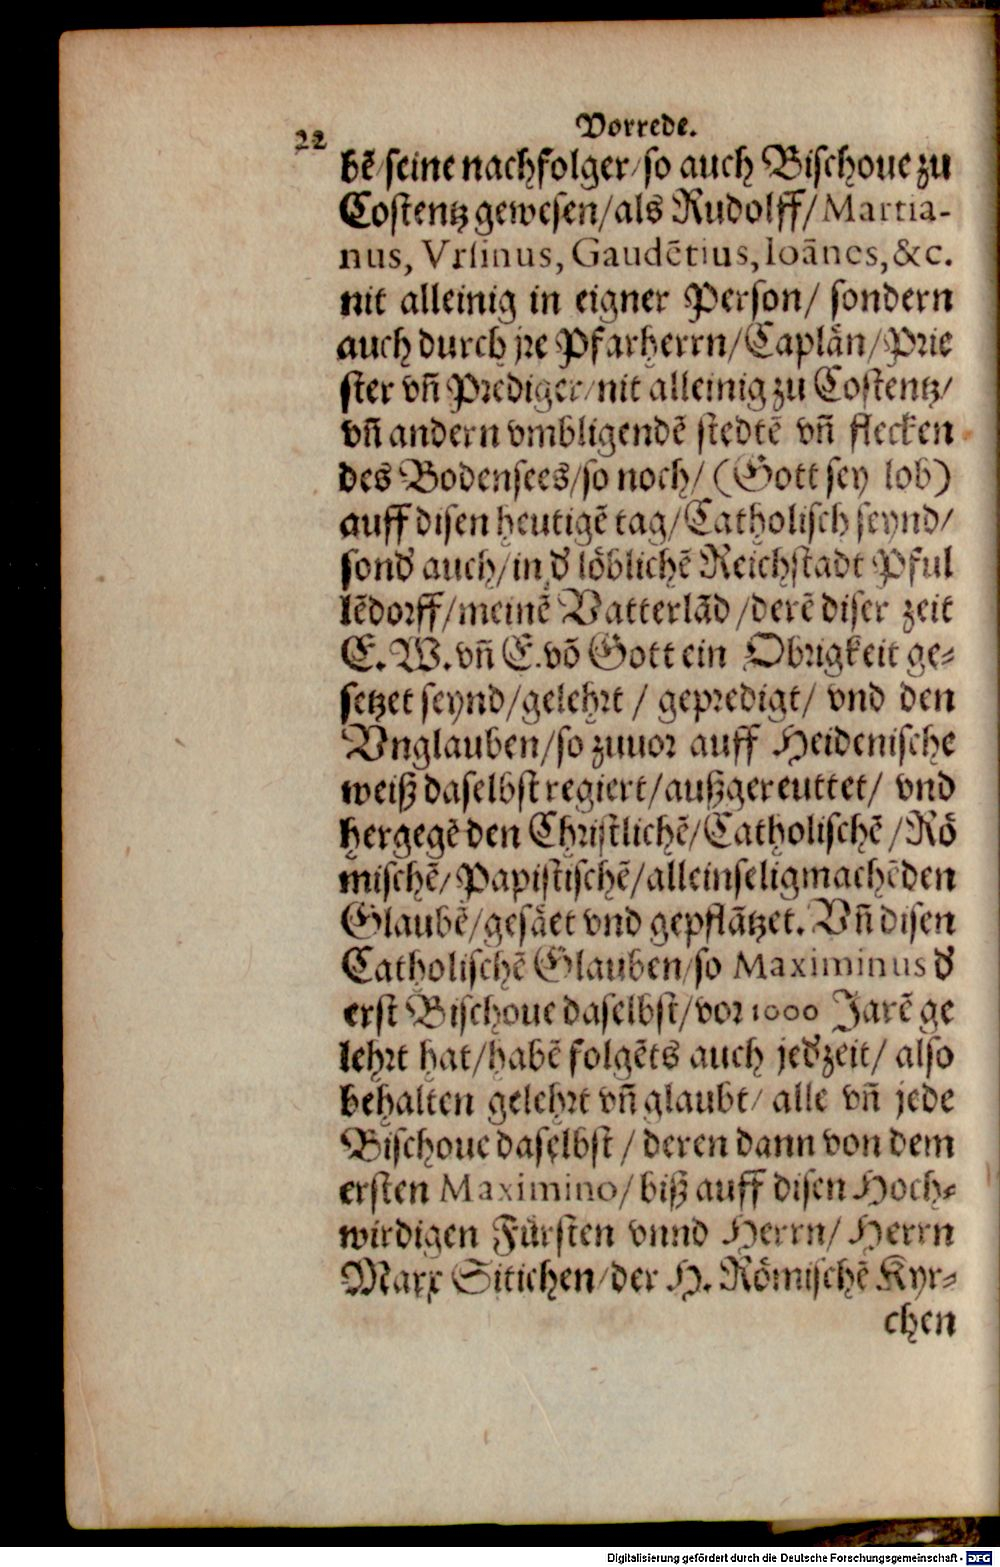 22
Vorrede.
bẽ/seine nachfolger/so auch Bischoue zu
Costentz gewesen/als Rudolff/Martia-
nus, Vrsinus, Gaudẽtius, Ioãnes, &c.
nit alleinig in eigner Person/ sondern
auch durch jre Pfarherrn/Caplän/Prie
ster vñ Prediger/nit alleinig zu Costentz/
vñ andern vmbligendẽ stedtẽ vñ flecken
des Bodensees/so noch/(Gott sey lob)
auff disen heutigẽ tag/Catholisch seynd/
sond̕ auch/in d̕ löblichẽ Reichstadt Pful
lẽdorff/meinẽ Vatterlãd/derẽ diser zeit
E. W. vñ E. võ Gott ein Obrigkeit ge-
setzet seynd/gelehrt / gepredigt/ vnd den
Vnglauben/so zuuor auff Heidenische
weiß daselbst regiert/außgereuttet/ vnd
hergegẽ den Christlichẽ/Catholischẽ/Rö
mischẽ/Papistischẽ/alleinseligmachẽden
Glaubẽ/gesäet vnd gepflãtzet. Vñ disen
Catholischẽ Glauben/so Maximinus d̕
erst Bischoue daselbst/vor 1000 Jarẽ ge
lehrt hat/habẽ folgẽts auch jed̕zeit/ also
behalten gelehrt vñ glaubt/ alle vñ jede
Bischoue daselbst / deren dann von dem
ersten Maximino/biß auff disen Hoch-
wirdigen Fürsten vnnd Herrn/ Herrn
Marx Sitichen/der H. Römischẽ Kyr-
chen
Digitalisierung gefördert durch die Deutsche Forschungsgemeinschaft - DFG